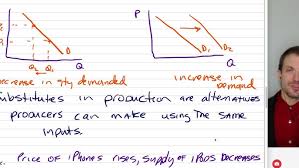 P
D₁
D₁ D₂
Q₂ Q₁ Q
Q
decrease in qty demanded
increase in
demand
Substitutes in production are alternatives
producers can make using the same
inputs.
Price of iPhones rises, supply of iPods decreases